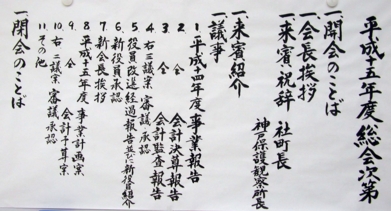 平成十五年度 総会次第
一、開会のことば
一、会長挨拶
一、来賓祝辞 社町長
神戸保護観察所長
一、来賓紹介
一、議事
1. 平成十四年度事業報告
2. 仝 会計決算報告
3. 仝 会計監査報告
4. 右三議案 審議、承認
5. 役員改選経過報告並びに新役員紹介
6. 新役員承認
7. 新会長挨拶
8. 平成十五年度 事業計画案
9. 仝 会計予算案
10. 右二議案 審議、承認
11. その他
一、閉会のことば